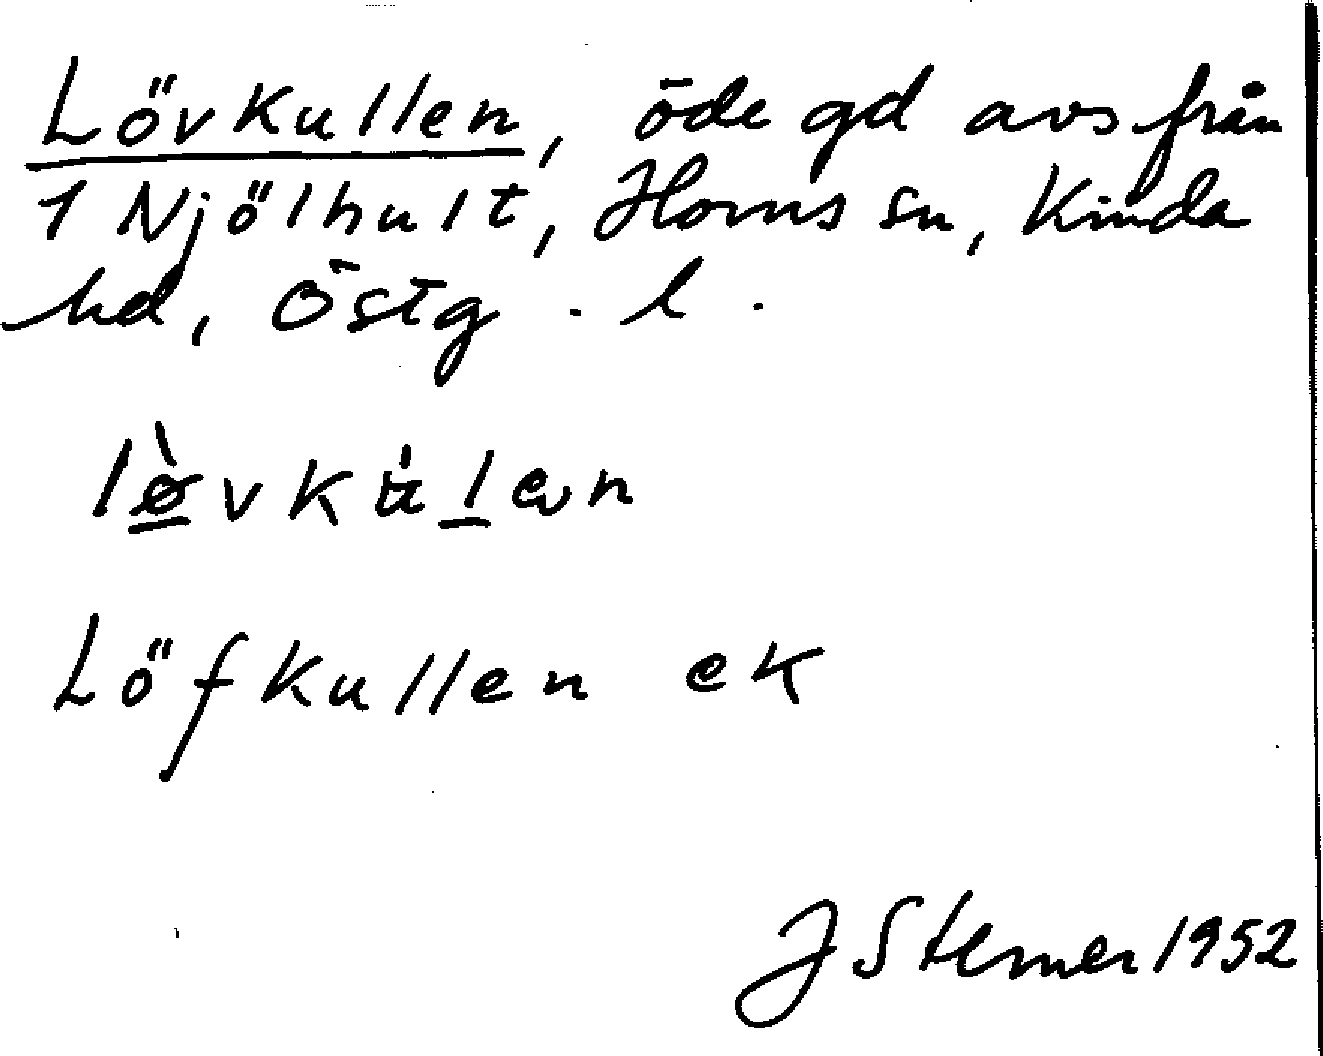 Lövkullen, öde gd avs från
1 Njölhult, Horns sn, Kinda
hd, Östg. l.
Löfkullen ek
J Sterner 1952